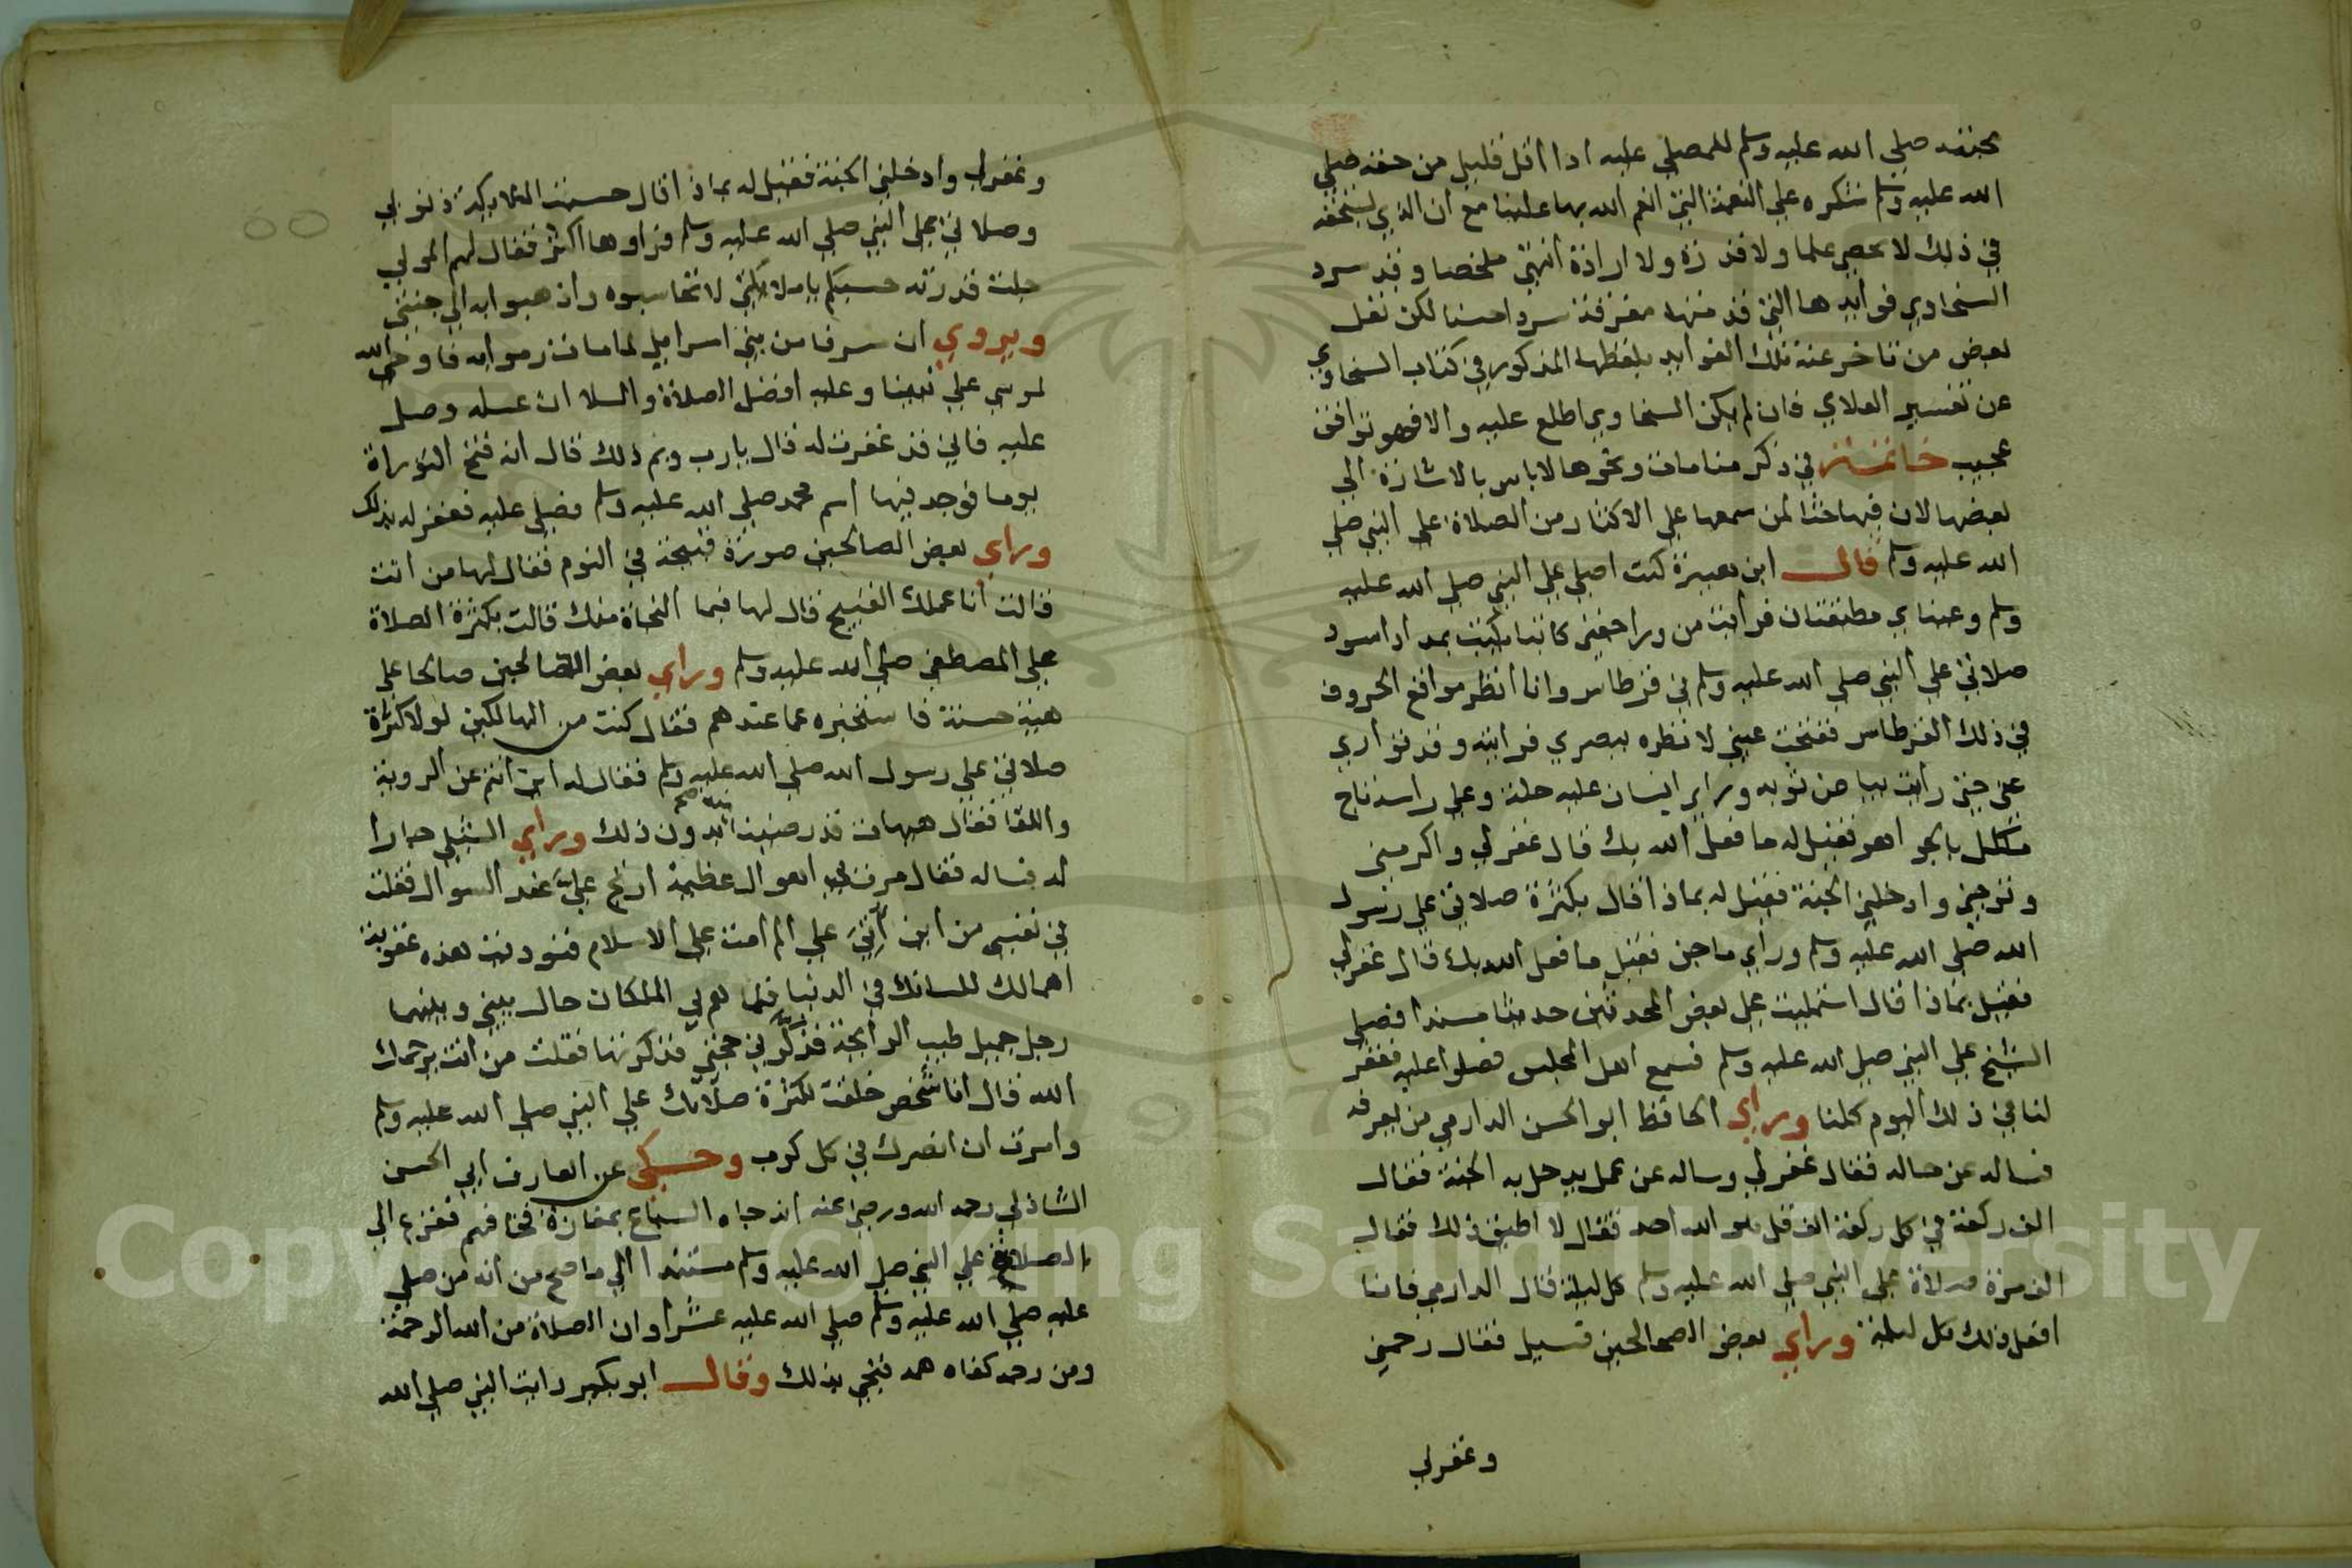 بحقه صلي الله عليه وسلم للمصلي عليه اداء اقل قليل من حقه صلي
الله عليه وسلم شكره علي النعمة التي انعم الله بها علينا مع ان الذي يستحقه
في ذلك لا يحصر علما ولا قدرة ولا ارادة انتهي ملخصا وقد سرد
السخاوي فوايدها التي قدمتها مفرقة سردا حسنا لكن نقل
بعض من تاخر عنه تلك الفوايد بلفظها المذكور في كتاب السخاوي
عن تفسير العلاي فان لم يكن السخاوي اطلع عليه والا فهو توافق
عجيب خاتمة في ذكر منامات ونحوها لا باس بالاشارة الي
بعضها لان فيها حثا لمن سمعها علي الاكثار من الصلاة علي النبي صلي
الله عليه وسلم قال ابن كنت اصلي علي النبي صلي الله عليه
وسلم وعيناي مطبقتان فرايت من ورا جفني كاتبا يكتب بمداد اسود
صلاتي علي النبي صلي الله عليه وسلم في قرطاس وانا انظر مواقع الحروف
في ذلك القرطاس ففتحت عيني لانظره ببصري فرايته وقد تواري
عني حتي رايت بياض ثوبه وراي انسان عليه حلة وعلي راسه تاج
مكلل بالجواهر فقيل له ما فعل الله بك قال غفر لي واكرمني
وتوجني وادخلني الجنة فقيل له بماذا قال بكثرة صلاتي علي رسول
الله صلي الله عليه وسلم وراي ماجن فقيل ما فعل الله بك قال غفر لي
فقيل بماذا قال استمليت علي بعض المحدثين حديثا مسندا فصلي
الشيخ علي النبي صلي الله عليه وسلم فسمع اهل المجلس فصلوا عليه فغفر
لنا في ذلك اليوم كلنا وراي الحافظ ابو الحسن الدارمي من يعرفه
فساله عن حاله فقال غفر لي وساله عن عمل يدخل به الجنة فقال
الف ركعة في كل ركعة الف قل هو الله احد فقال لا اطيق ذلك فقال
الف مرة صلاة علي النبي صلي الله عليه وسلم كل ليلة قال الدارمي فانا
افعل ذلك كل ليلة وراي بعض الصالحين فسيل فقال رحمني
وغفر لي
وغفر لي وادخلني الجنة فقيل له بماذا قال حسبت الملايكة ذنوبي
وصلاتي علي النبي صلي الله عليه وسلم فراوها اكثر فقال لهم المولي
جلت قدرته حسبكم يا ملايكتي لا تحاسبوه واذهبوا به الي جنتي
ويروي ان مسرفا من بني اسراييل لما مات رموا به فاوحي الله
لموسي علي نبينا وعليه افضل الصلاة والسلا ان غسله وصل
عليه فاني قد غفرت له قال يا رب وبم ذلك قال انه فتح التوراة
يوما فوجد فيها اسم محمد صلي الله عليه وسلم فصلي عليه فغفر له بذلك
وراي بعض الصالحين صورة قبيحة في النوم فقال لها من انت
قالت انا عملك القبيح قال لها فبما النجاة منك قالت بكثرة الصلاة
علي المصطفي صلي الله عليه وسلم وراي بعض الصالحين صالحا علي
هيية حسنة فاستخبره عما عندهم فقال كنت من الهالكين لولا كثرة
صلاتي علي رسول الله صلي الله عليه وسلم فقال له اين انتم عن الروية
واللقا فقال هيهات قد رضينا منه بدون ذلك وراي الشبلي جارا
له فساله فقال مرت بي اهوال عظيمة ارتج علي عند السوال فقلت
في نفسي من اين اتي علي الم امت علي الاسلام فنوديت هذه عقوبة
اهمالك للسانك في الدنيا فلما هم بي الملكان حال بيني وبينهما
رجل جميل طيب الرايحة فذكرني حجتي فذكرتها فقلت من انت يرحمك
الله قال انا شخص خلقت بكثرة صلاتك علي النبي صلي الله عليه وسلم
وامرت ان انصرك في كل كرب وحكي عن العارف ابي الحسن
الشاذلي رحمه الله ورضي عنه انه جاه السباع بمفازة فخافهم ففزع الي
الصلاة علي النبي صلي الله عليه وسلم مستندا الي ما صح من انه من صلي
عليه صلي الله عليه وسلم صلي الله عليه عشرا وان الصلاة من الله الرحمة
ومن رحمه كفاه همه فنجي بذلك وقال ابو بكر رايت النبي صلي الله